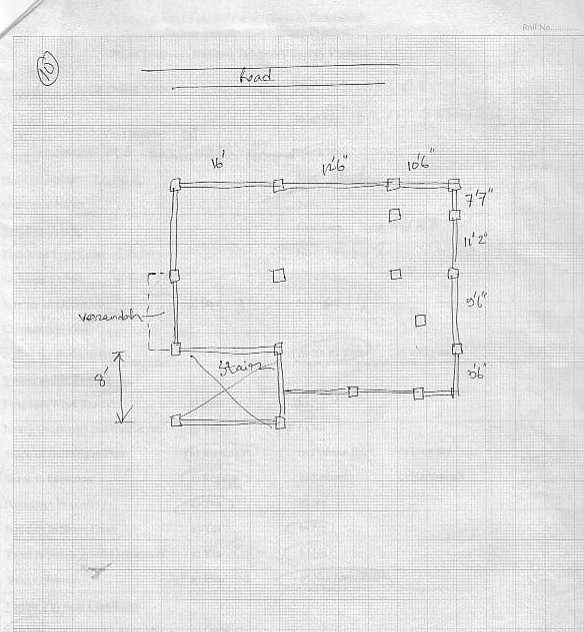 Roll No..........
10
Road
16' 12'6" 10'6"
7'7"
11'2"
9'6"
verandah
Stairs
8'